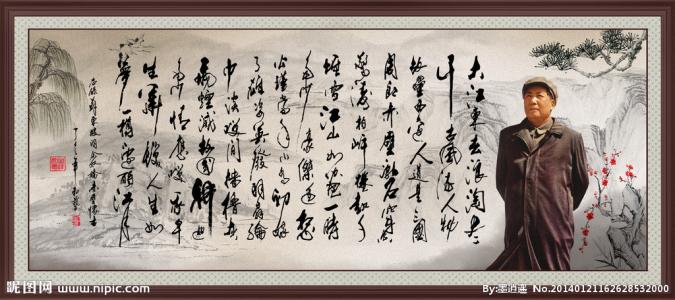 大江東去浪淘尽
千古風流人物
故壘西邊人道是三國
周郎赤壁亂石穿空
驚濤拍岸捲起千
堆雪江山如画一時
多少豪傑遥想
公瑾當年小喬初嫁
了雄姿英發羽扇綸
巾談笑間檣櫓灰
飛煙滅故國神遊
多情應笑我早
生華髮人生如
夢一樽還酹江月
昵图网 www.nipic.com
By:墨逍遥 No.20140121162628532000